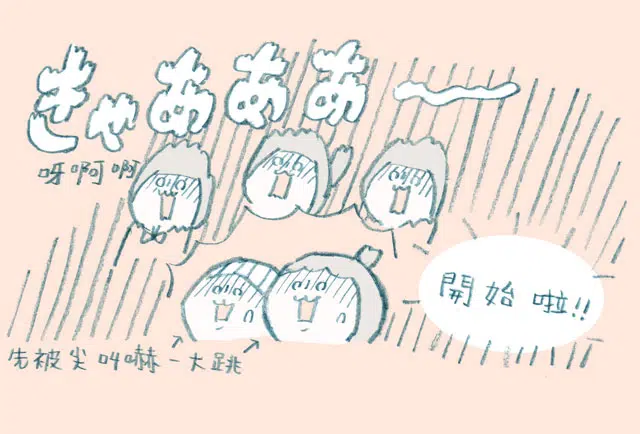 きゃあああ〜
呀啊啊
開始啦!!
先被尖叫嚇一大跳